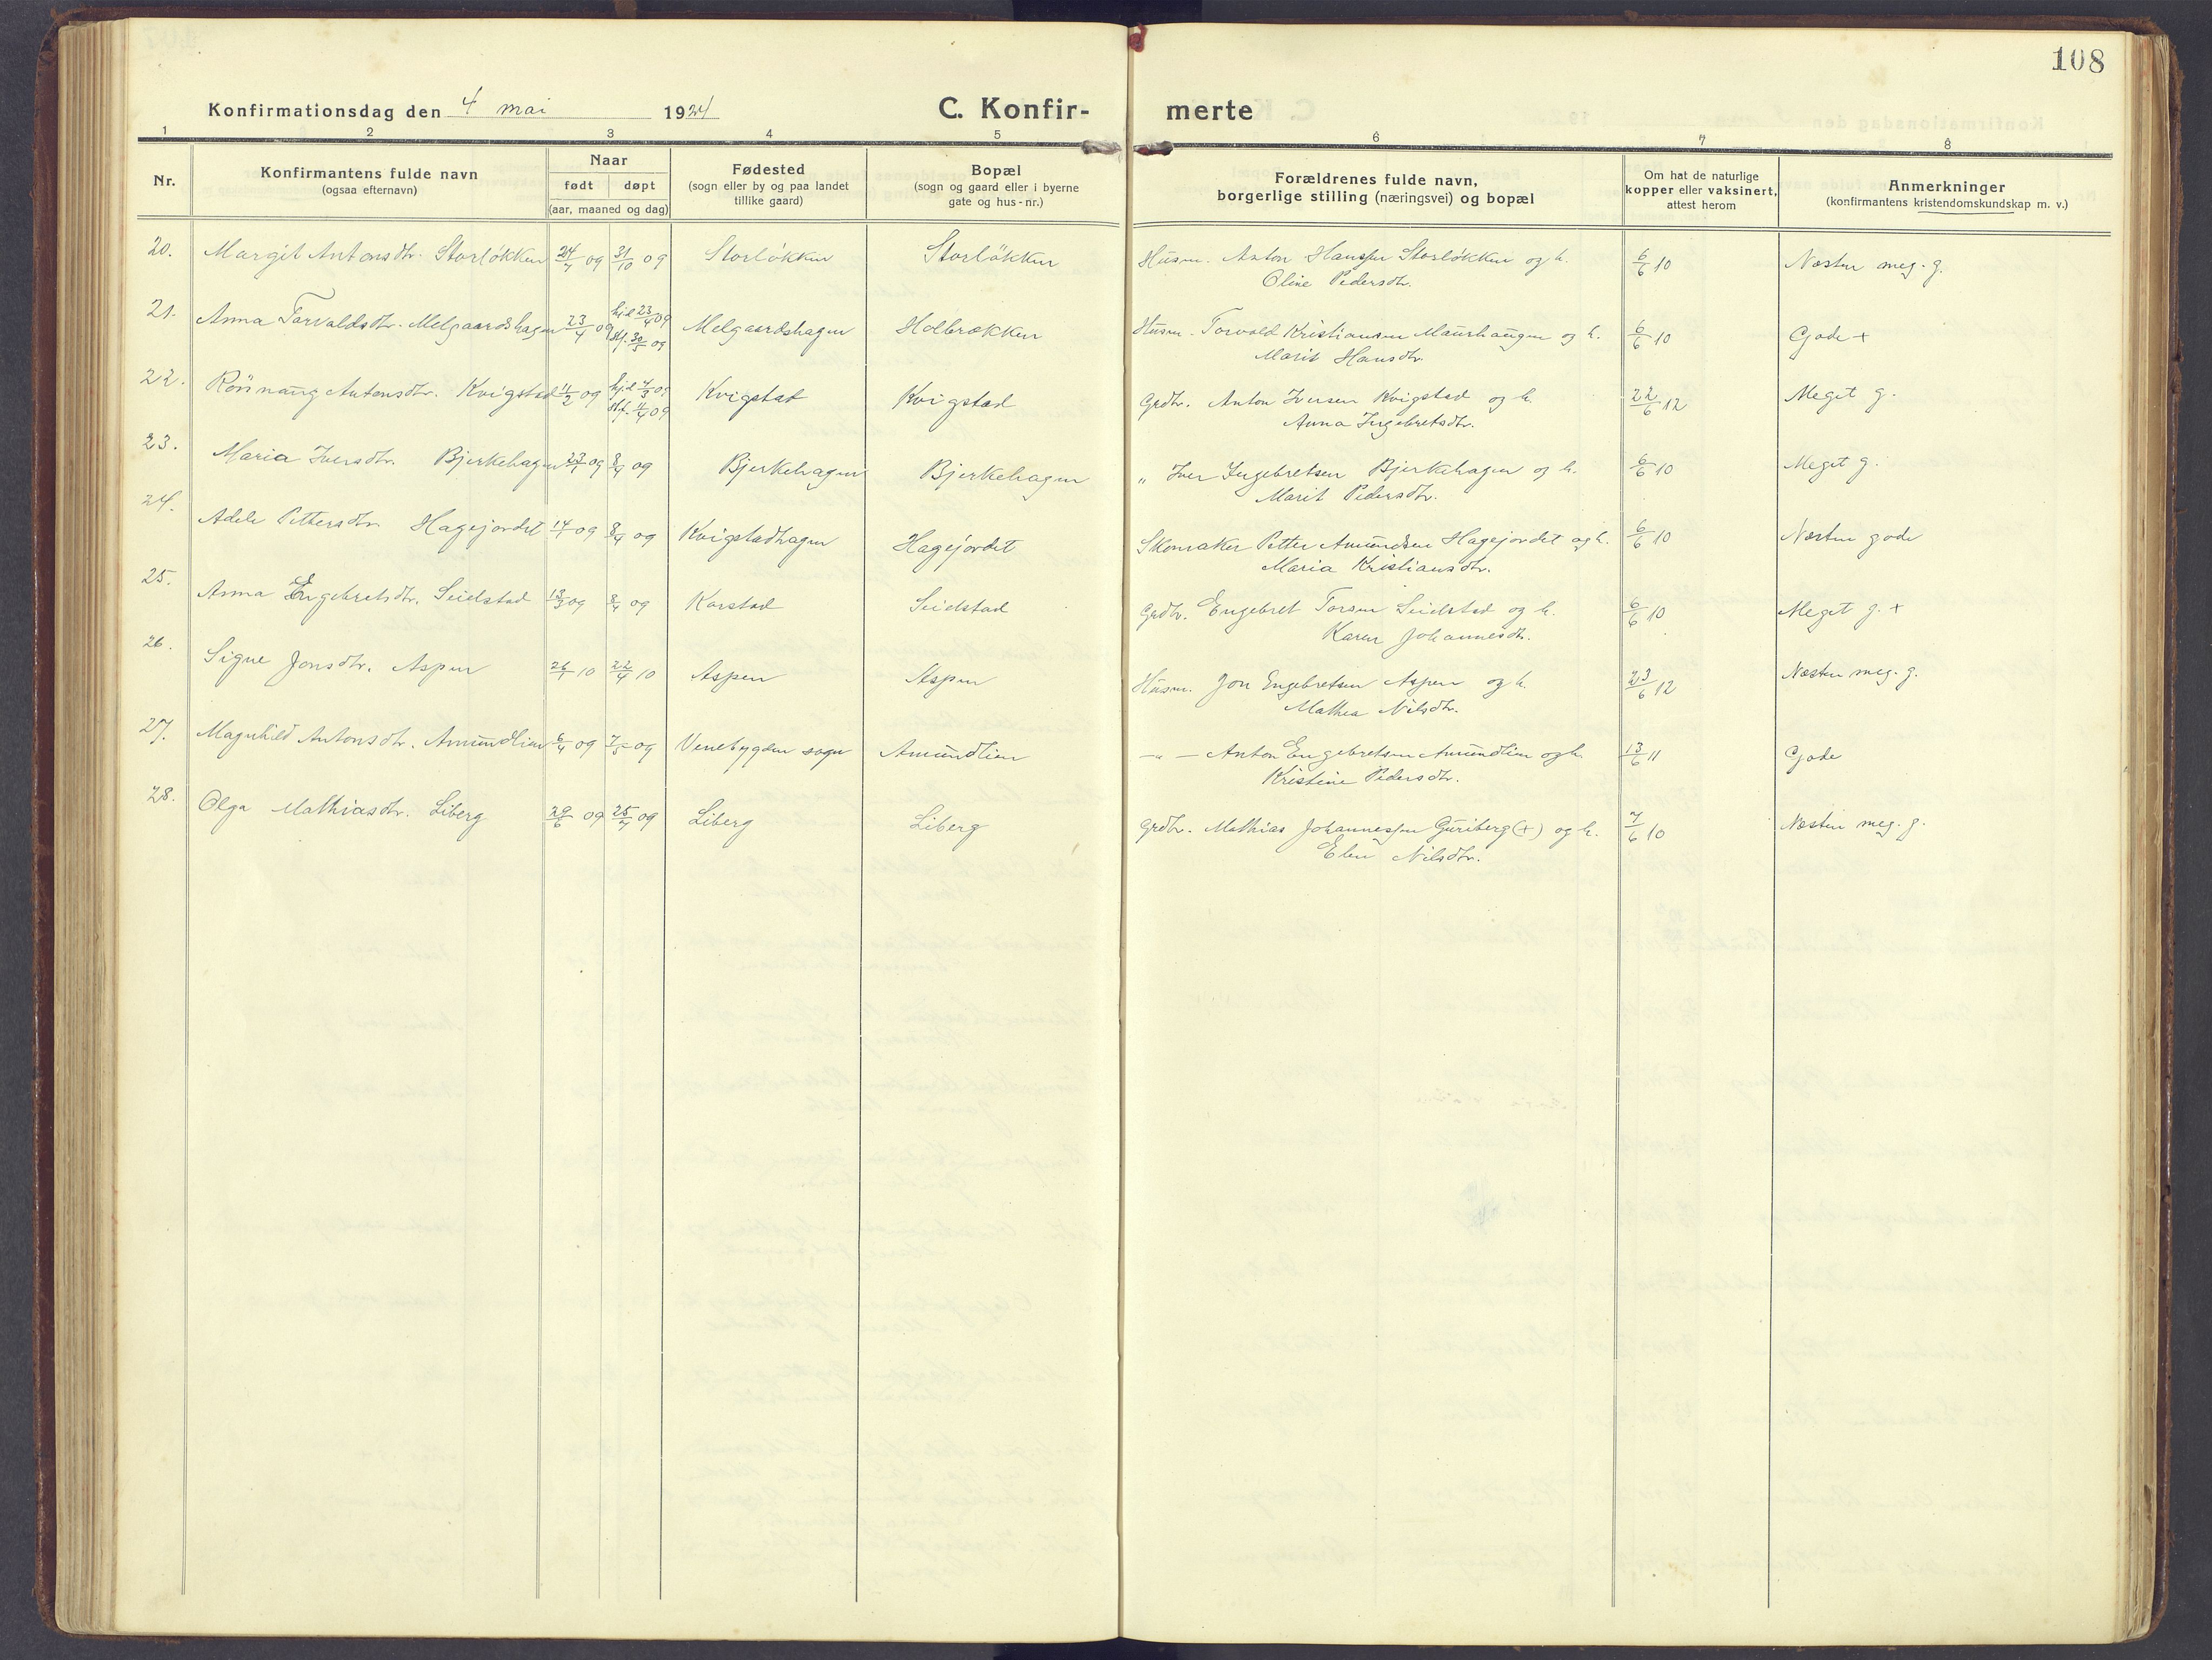 108
Konfirmationsdag den 4 mai 1924
C. Konfirmerte
1 2 3 4 5 6 7 8
Nr.
Konfirmantens fulde navn
(ogsaa efternavn)
Naar
født døpt
(aar, maaned og dag)
Fødested
(sogn eller by og paa landet
tillike gaard)
Bopæl
(sogn og gaard eller i byerne
gate og hus-nr.)
Forældrenes fulde navn,
borgerlige stilling (næringsvei) og bopæl
Om hat de naturlige
kopper eller vaksinert,
attest herom
Anmerkninger
(konfirmantens kristendomskundskap m. v.)
20. Margit Antonsdtr. Storløkken 24/7 09 31/10 09 Storløkken Storløkken Husm. Anton Hansen Storløkken og h. 6/6 10 Næsten meg. g.
Oline Pedersdtr.
21. Anna Torvaldsdtr. Melgaardshagen 23/4 09 hjd 23/4 09 Melgaardshagen Holbrækken Husm. Torvald Kristiansen Maurhaugen og h. 6/6 10 Gode +
stf. 30/5 09
Marit Hansdtr.
22. Rönnaug Antonsdtr. Kvigstad 11/2 09 Kvigstad Kvigstad Grdbr. Anton Iversen Kvigstad og h. 22/6 12 Meget g.
stf. 11/4 09
Anna Ingebretsdtr.
23. Maria Iversdtr. Bjerkehagen 09 8/4 09 Bjerkehagen Bjerkehagen " Iver Ingebretsen Bjerkehagen og h. 6/6 10 Meget g.
Marit Pedersdtr.
24. Adele Pettersdtr. Hagejordet 09 8/4 09 Kvigstadhagen Hagejordet Skomaker Petter Amundsen Hagejordet og h. 6/6 10 Næsten gode
Maria Kristiansdtr.
25. Anna Engebretsdtr. Seielstad 13/3 09 8/4 09 Karstad Seielstad Grdbr. Engebret Torsen Seielstad og h. 6/6 10 Meget g. +
Karen Johannesdtr.
26. Signe Jonsdtr. Aspen 26/1 10 22/4 10 Aspen Aspen Husm. Jon Engebretsen Aspen og h. 23/6 12 Næsten meg. g.
Mathea Nilsdtr.
27. Magnhild Antonsdtr. Amundlien 6/4 09 7/5 09 Venebygden sogn Amundlien -"- Anton Engebretsen Amundlien og h. 13/6 11 Gode
Kristine Pedersdtr.
28. Olga Mathiasdtr. Liberg 29/6 09 25/7 09 Liberg Liberg Grdbr. Mathias Johannessen Guriberg (+) og h. 7/6 10 Næsten meg. g.
Elen Nilsdtr.